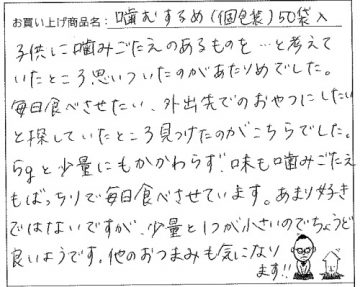 お買い上げ商品名: 噛むするめ(個包装)50袋入
子供に噛みごたえのあるものを…と考えて
いたところ思いついたのがあたりめでした。
毎日食べさせたい、外出先でのおやつにしたい
と探していたところ見つけたのがこちらでした。
5gと少量にもかかわらず、味も噛みごたえ
もばっちりで毎日食べさせています。あまり好き
ではないですが、少量と1つが小さいのでちょうど
良いようです。他のおつまみも気になり
ます!!